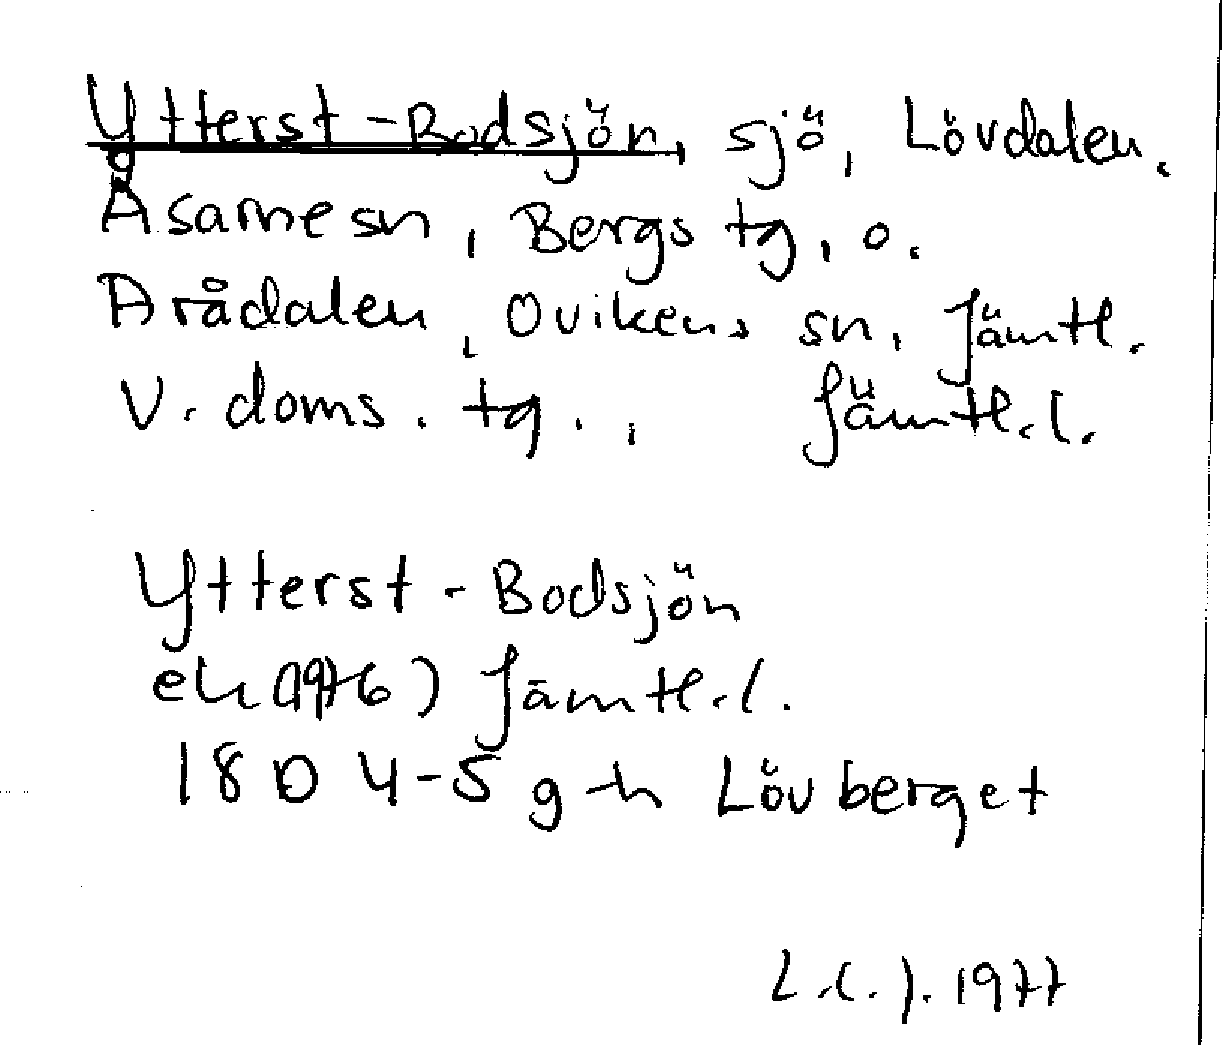 Ytterst-Bodsjön, sjö, Lövdalen.
Åsarne sn, Bergs tg, o.
Arådalen, Ovikens sn, Jämtl.
V. doms. tg., Jämtl.l.
Ytterst-Bodsjön
ek (1976) Jämtl.l.
18D 4-5 g-h Lövberget
L.C.J. 1977